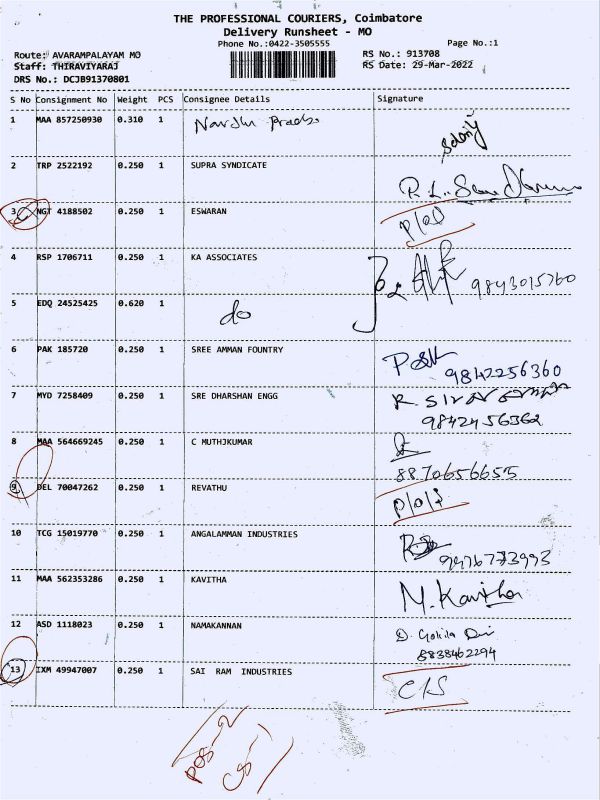 THE PROFESSIONAL COURIERS, Coimbatore
Delivery Runsheet - MO
Phone No.:0422-3505555
Page No.:1
Route: AVARAMPALAYAM MO
RS No.: 913708
Staff: THIRAVIYARAJ
RS Date: 29-Mar-2022
DRS No.: DCJB91370801
S No Consignment No Weight PCS Consignee Details Signature
1 MAA 857250930 0.310 1
2 TRP 2522192 0.250 1 SUPRA SYNDICATE
3 NGT 4188502 0.250 1 ESWARAN
4 RSP 1706711 0.250 1 KA ASSOCIATES 9843015760
5 EDQ 24525425 0.620 1 do
6 PAK 185720 0.250 1 SREE AMMAN FOUNTRY 9842256360
7 MYD 7258409 0.250 1 SRE DHARSHAN ENGG
9842456362
8 MAA 564669245 0.250 1 C MUTHJKUMAR
8870656655
9 DEL 70047262 0.250 1 REVATHU
10 TCG 15019770 0.250 1 ANGALAMMAN INDUSTRIES
9976773993
11 MAA 562353286 0.250 1 KAVITHA M. Kavitha
12 ASD 1118023 0.250 1 NAMAKANNAN
8838462294
13 IXM 49947007 0.250 1 SAI RAM INDUSTRIES C/S